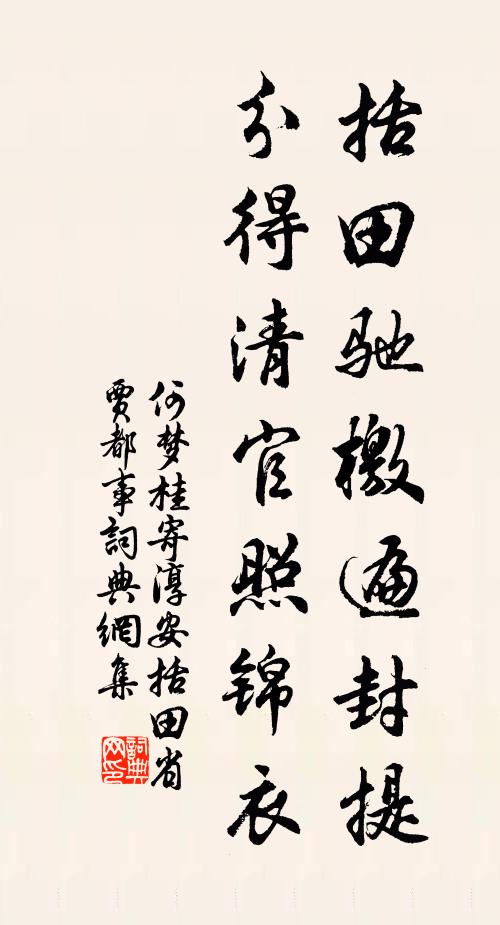 括田驰檄遍封提
分得清官照锦衣
何梦桂寄淳安括田省
贾都事詞典網集
詞典網印